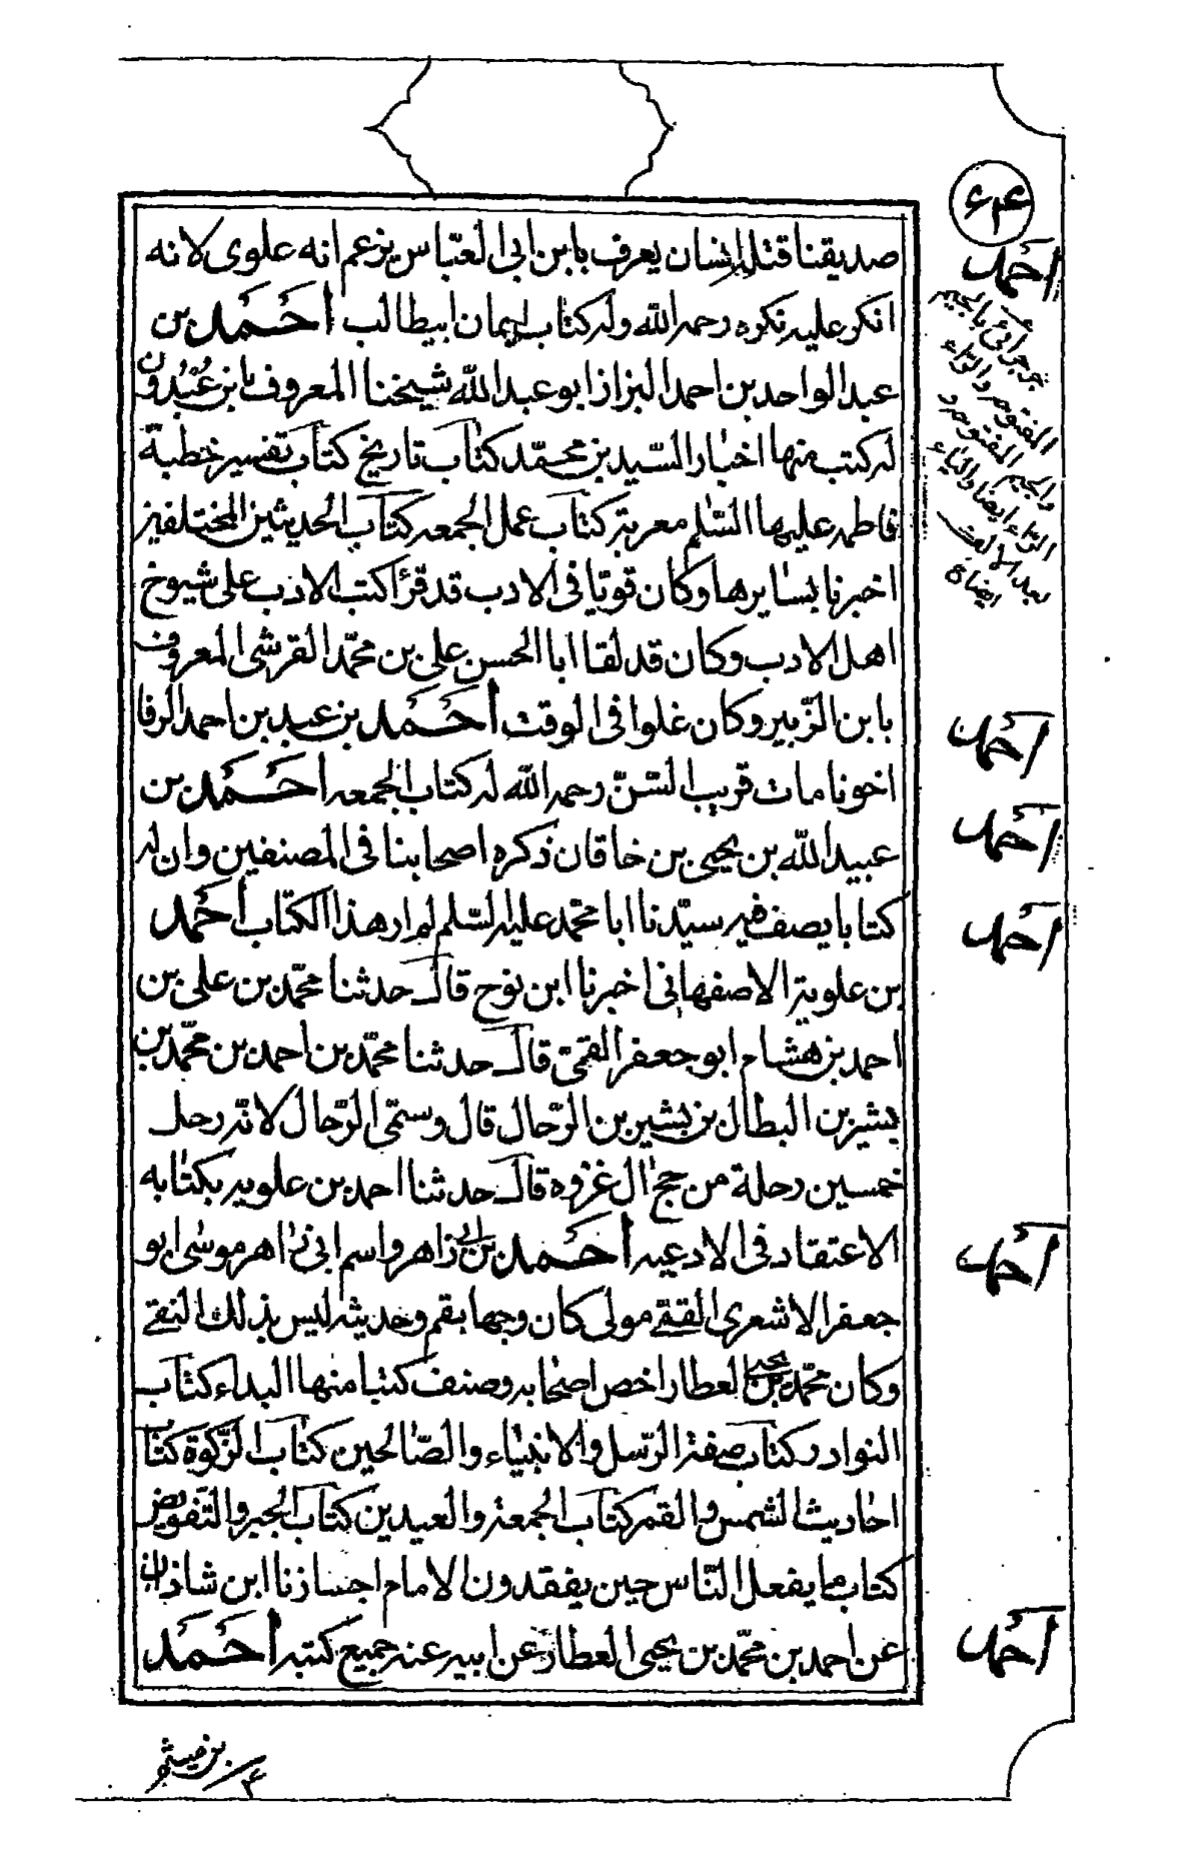 ۶۴
صديقنا قتله انسان يعرف بابن ابى العبّاس يزعم انه علوى لانه
انكر عليه نكره رحمه الله وله كتاب ايمان ابيطالب أحَمَد بن
عبد الواحد بن احمد البزاز ابو عبد الله شيخنا المعروف بابن عُبْدُون
له كتب منها اخبار السّيد بن محمّد كتاب تاريخ كتاب تفسير خطبة
فاطمه عليها السّلم معربة كتاب عمل الجمعه كتاب الحديثين المختلفين
اخبرنا بسايرها وكان قويّا فى الادب قد قرأ كتب الادب على شيوخ
اهل الادب وكان قد لقا ابا الحسن على بن محمّد القرشى المعروف
بابن الزّبير وكان غلوا فى الوقت أحَمَد بن عبد بن احمد الرفا
اخونا مات قريب السّنّ رحمه الله له كتاب الجمعه أحَمَد بن
عبيد الله بن يحيى بن خاقان ذكره اصحابنا فى المصنفين وان له
كتابا يصف فيه سيّدنا ابا محمّد عليه السّلم لم ار هذا الكتاب أحَمَد
بن علوية الاصفهانى اخبرنا ابن نوح قال حدثنا محمّد بن على بن
احمد بن هشام ابو جعفر القمىّ قال حدثنا محمّد بن احمد بن محمّد بن
بشير بن البطال بن بشير بن الرّحال قال وسمّى الرّحال لانّه رحل
خمسين رحلة من حج ال غزوه قال حدثنا احمد بن علويه بكتابه
الاعتقاد فى الادعيه أحَمَد بن ابى زاهر واسم ابى زاهر موسى ابو
جعفر الاشعرى القمّى مولى كان وجها بقم وحديثه ليس بذلك النقى
وكان محمّد بن يحيى العطار اخص اصحابه وصنف كتبا منها البداء كتاب
النوادر كتاب صفة الرّسل والانبياء والصّالحين كتاب الزّكوة كتاب
احاديث الشمس والقمر كتاب الجمعة والعيدين كتاب الجبر والتّفويض
كتاب ما يفعل النّاس حين يفقدون الامام اجازنا ابن شاذان
عن احمد بن محمّد بن يحيى العطار عن ابيه عنه جميع كتبه أحَمَد
أحمَد
جرجرائى بالجيم
المفتوح والرّاء
والجيم المفتوح و
الرّاء ايضا والياء
بعد الالف
ايضاح
أحمَد
أحمَد
أحمَد
أحمَد
أحمَد
بن ميثم